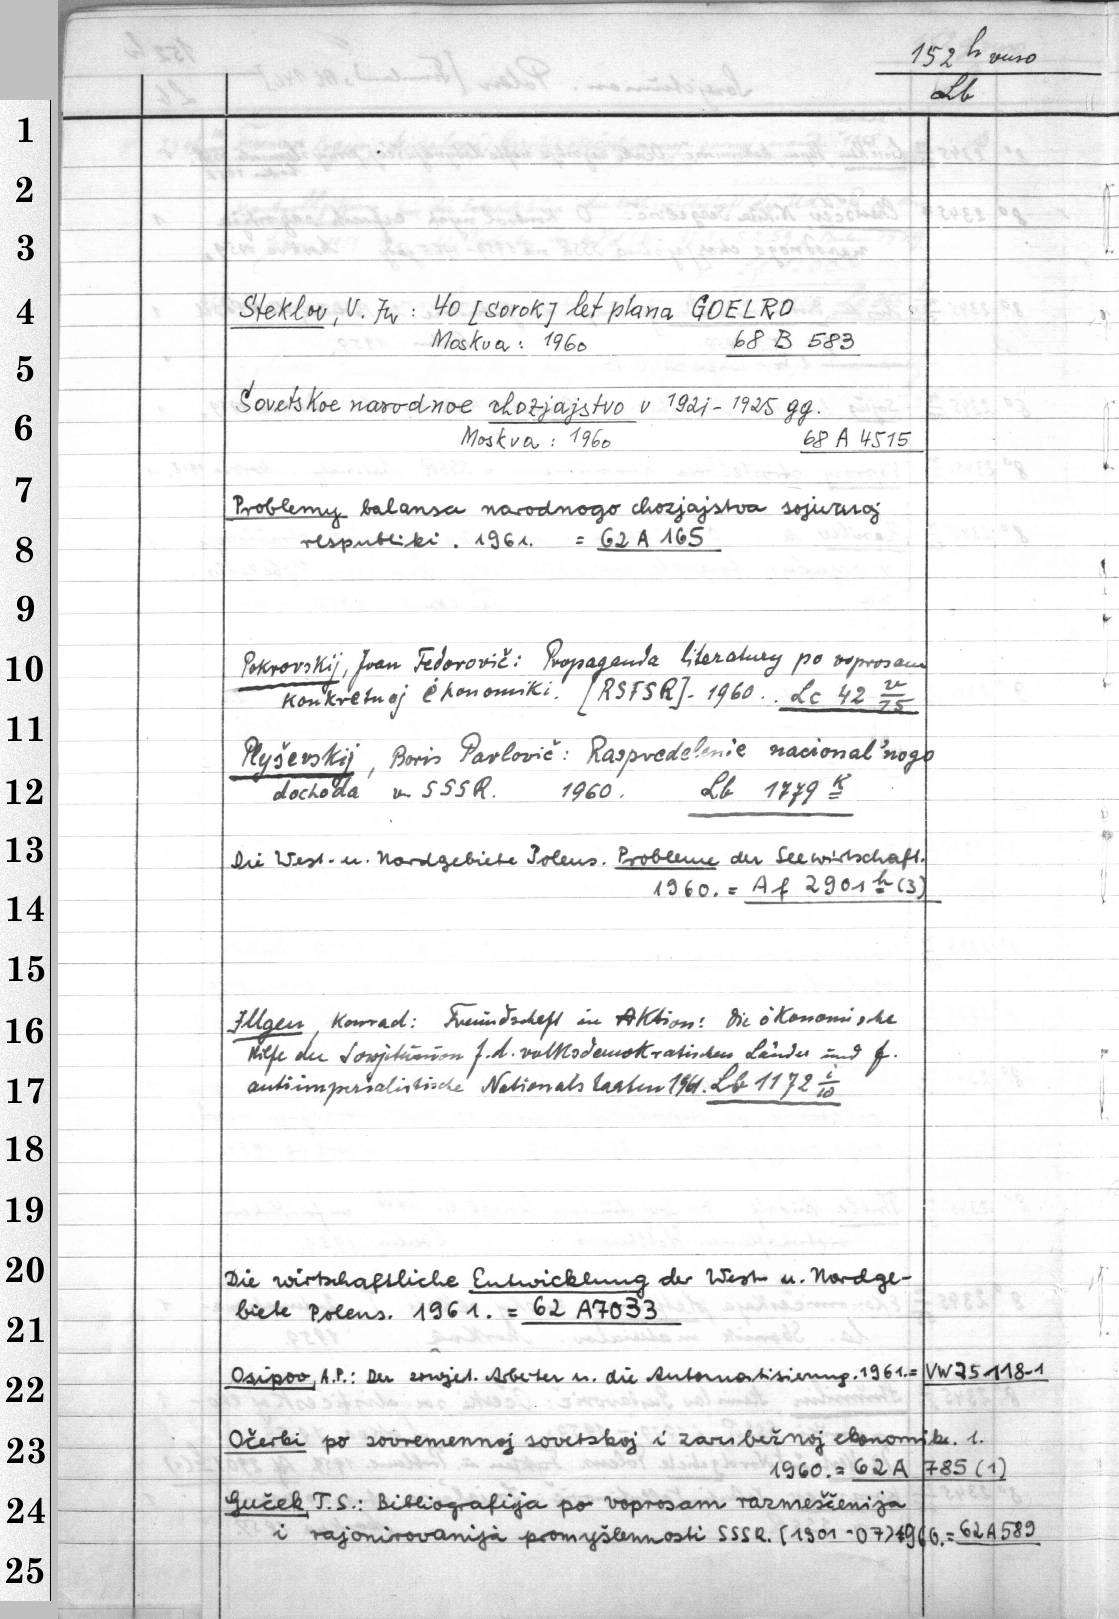 152 h verso
Lb
1
2
3
4
5
6
7
8
9
10
11
12
13
14
15
16
17
18
19
20
21
22
23
24
25
Steklov, V. Ju : 40 [sorok] let plana GOELRO
Moskva : 1960 68 B 583
Sovetskoe narodnoe chozjajstvo v 1921-1925 gg.
Moskva : 1960 68 A 4515
Problemy balansa narodnogo chozjajstva sojuznoj
respubliki . 1961. = 62 A 165
Pokrovskij, Ivan Fedorovič: Propaganda literatury po voprosam
konkretnoj ėkonomiki. [RSFSR]. 1960. Lc 42 v/75
Plyševskij, Boris Pavlovič: Raspredelenie nacional'nogo
dochoda v SSSR. 1960. Lb 1779 k
Die West- u. Nordgebiete Polens. Probleme der Seewirtschaft.
1960. = Af 2901 h (3)
Illgen, Konrad: Freundschaft in Aktion: Die ökonomische
Hilfe der Sowjetunion f. d. volksdemokratischen Länder und f.
antiimperialistische Nationalstaaten 1961. Lb 1172 i/10
Die wirtschaftliche Entwicklung der West- u. Nordge-
biete Polens. 1961. = 62 A7033
Osipov, A.P.: Der sowjet. Arbeiter u. die Automatisierung. 1961. = VW 25-118-1
Očerki po sovremennoj sovetskoj i zarubežnoj ekonomike. 1.
1960. = 62A 785 (1)
Guček T.S.: Bibliografija po voprosam razmeščenija
i rajonirovanija promyšlennosti SSSR. (1901-07) 1960. = 62A589